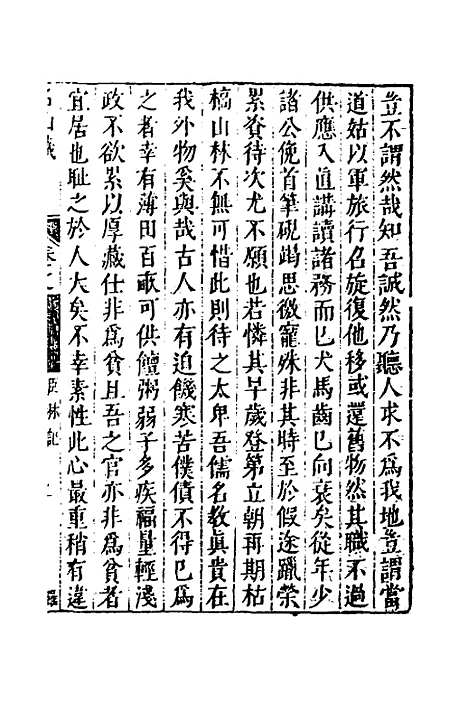 豈不謂然哉知吾誠然乃聽人求不爲我地豈謂當
道姑以軍旅行名旋復他移或還舊物然其職不過
供應入直講讀諸務而已犬馬齒已向衰矣從年少
諸公俛首筆硯蹋思徼寵殊非其時至於假途躐榮
累資待次尤不願也若憐其早歲登第立朝再期枯
槁山林不無可惜此則待之太卑吾儒名教眞貴在
我外物奚與哉古人亦有迫饑寒苦僕債不得已爲
之者幸有薄田百畝可供饘粥弱子多疾福量輕淺
政不欲累以厚藏仕非爲貧且吾之官亦非爲貧者
宜居也耻之於人大矣不幸素性此心最重稍有違
名山藏
卷之
臣林記